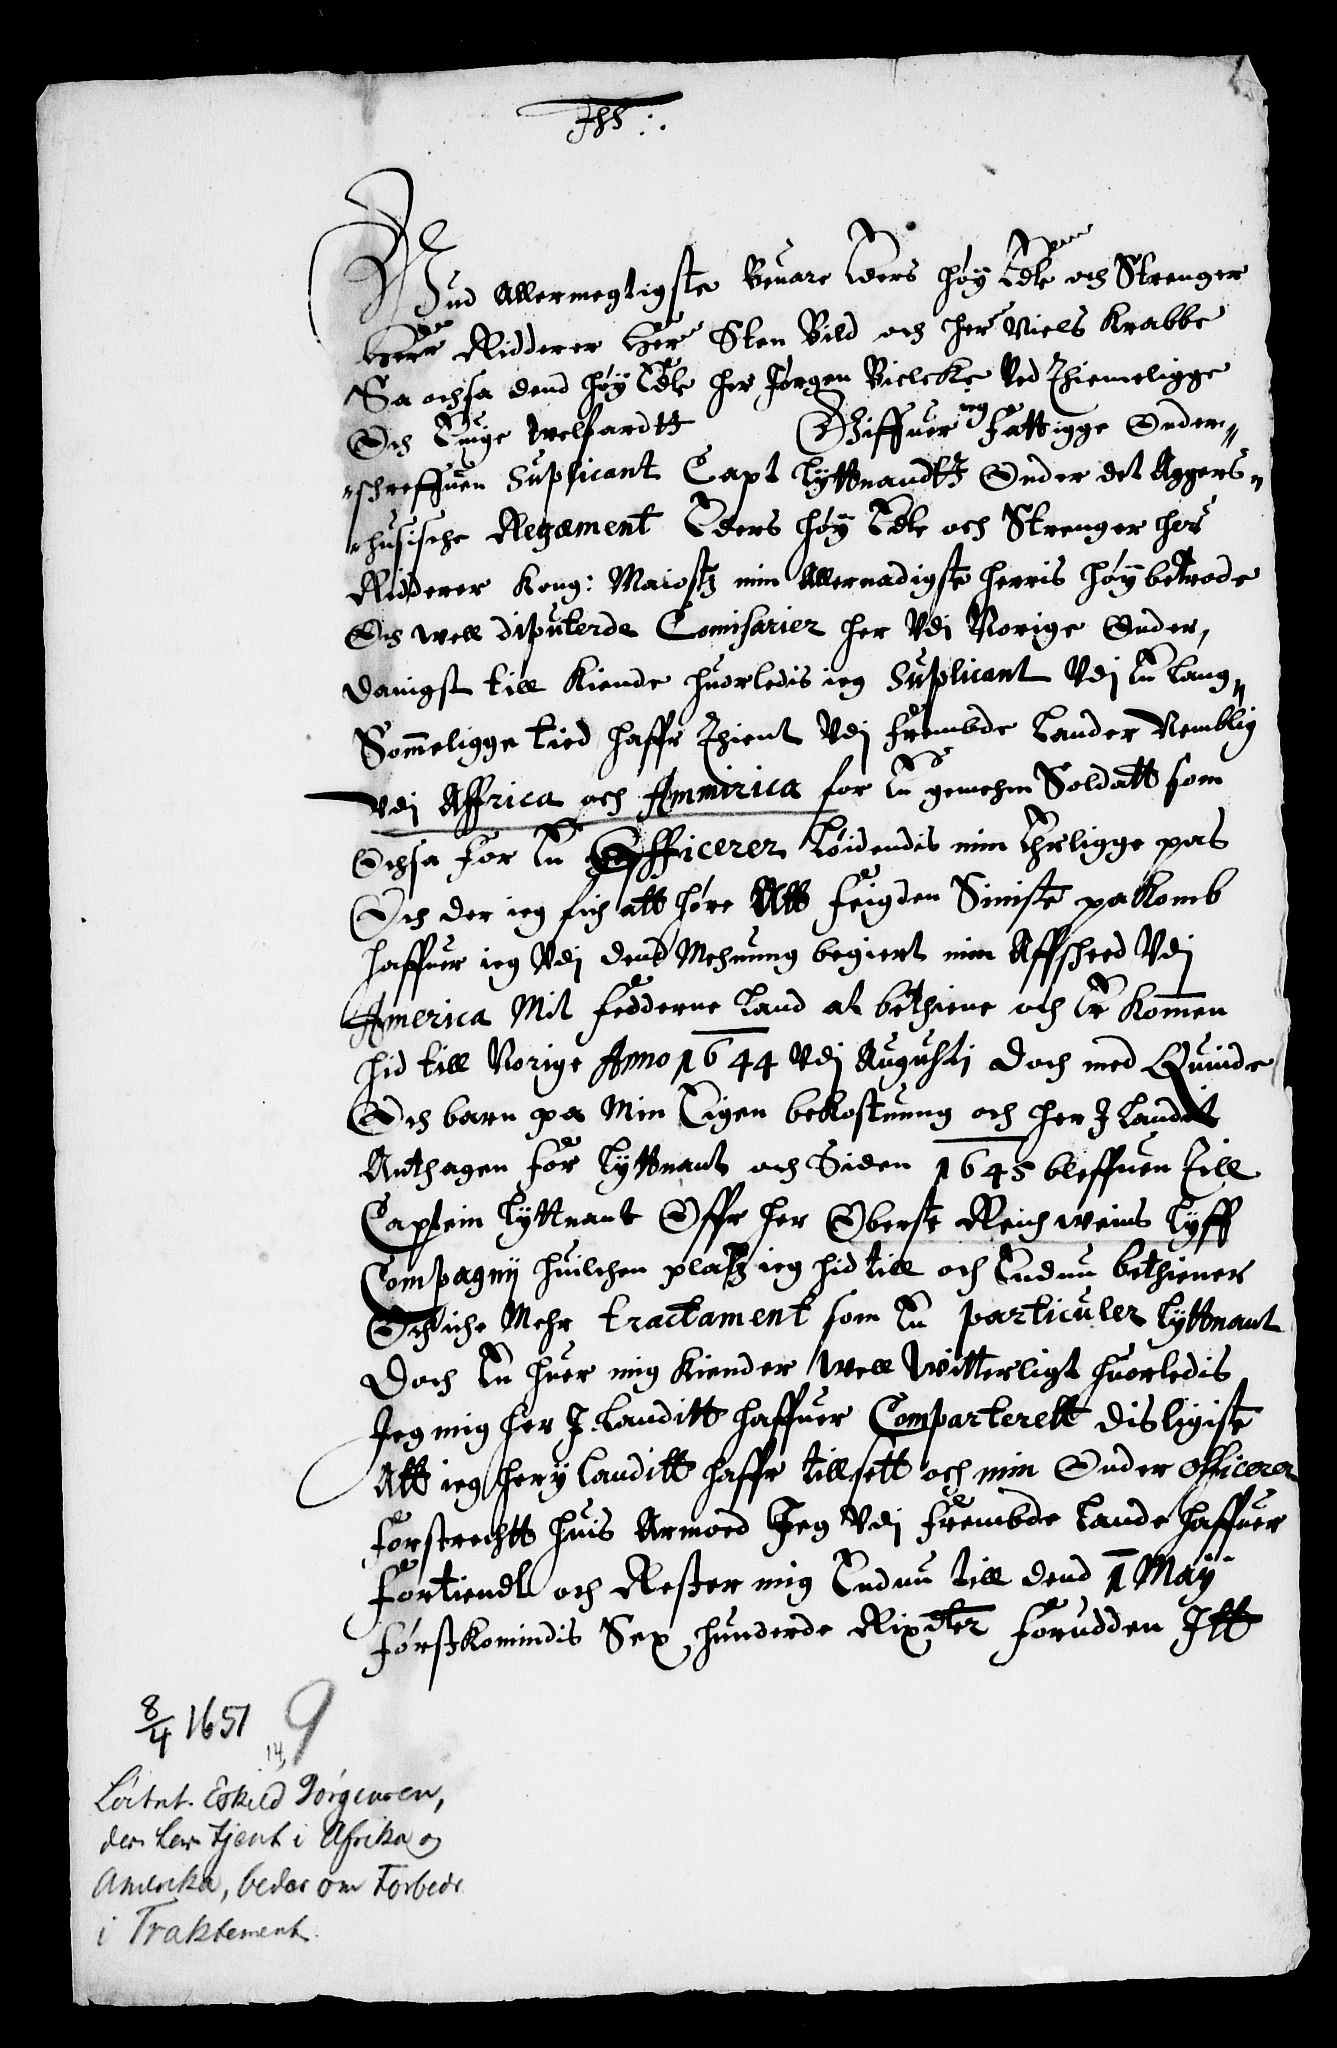 Jhs:
Gud Allermegtigste Beuare Eders høy Edle och Strenger
Herr Ridderer Her Sten Bild och her Niels Krabbe
Sa ochsa dend høy Edle her Jørgen Bielcke Ved Thimeligge
Och Euige welfardtt Giffuer ieg Fattigge Under„
„schreffuen Suplicant Capt Lyttnandtt Under det Aggers„
„husische Regæment Eders høy Edle och Strenger her
Ridderer Kong: Maiestz min Allernadigste herris høybetrode
Och well diputerde Comisarier her Vdi Norige Under,
danigst till Kiende huorledis ieg Suplicant Vdj En Lang„
Sommeligge tied haffr Thient Vdj Frembde Lander Nemblig
Vdj Affrica och Ammirica for En gemehen Soldatt som
Ochsa for En Officerer Løidendis min Ehrligge pas
Och der ieg fich att høre Att Feigden Siniste pa Komb
haffuer ieg Vdj dend Mehnung begiert min Affscheed Vdj
America Mit Fedderne Land at bethiene och Er Kommen
hid till Norige Anno 1644 Vdj Augusti doch med Quinde
Och barn pa Min Eigen bekostnung och her J Landet
Anthagen for Lyttnant och Siden 1645 bleffuen Till
Captein Lyttnant Offr her Oberste Reichweins Lyff
Compagnij huilchen platz ieg hid till och Endnu bethiener
Och iche Mehr tractament som En particuler Lyttnant
Doch En huer mig Kiender well Witterligt huorledis
Jeg mig her J Landitt haffuer Comparterett disligiste
Att ieg her y Landitt haffr tillsett och min Under officerer
Forstrechtt huis Armoed Jeg Vdj Frembde Lande haffuer
Fortiendt och Rester mig Endnu till dend 1 Maij
Førstkomindis Sex hunderde Rixdler Forudden Jtt
8/4 1651 9
14,
Løitnt. Eskild Jörgensen,
der har tjent i Afrika og
Amerika, beder om Forbedr.
i Traktement.